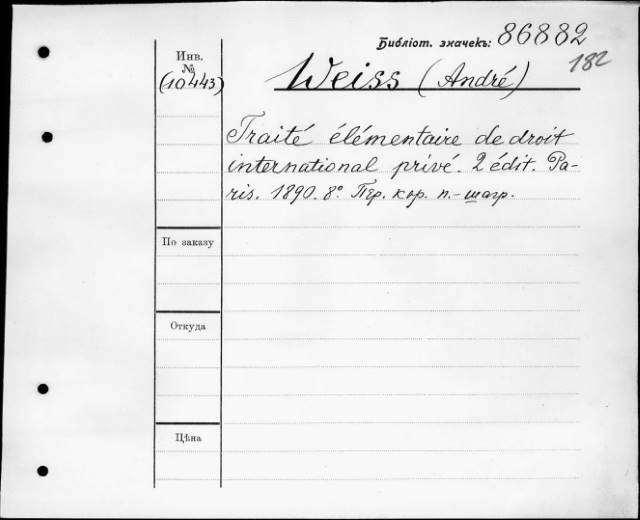 Библіот. значекъ: 86882
182
Инв.
№
(10443)
Weiss (André)
Traité élémentaire de droit
international privé. 2 édit. Pa-
ris. 1890. 8°. Пер. кор. п.-шагр.
По заказу
Откуда
Цѣна